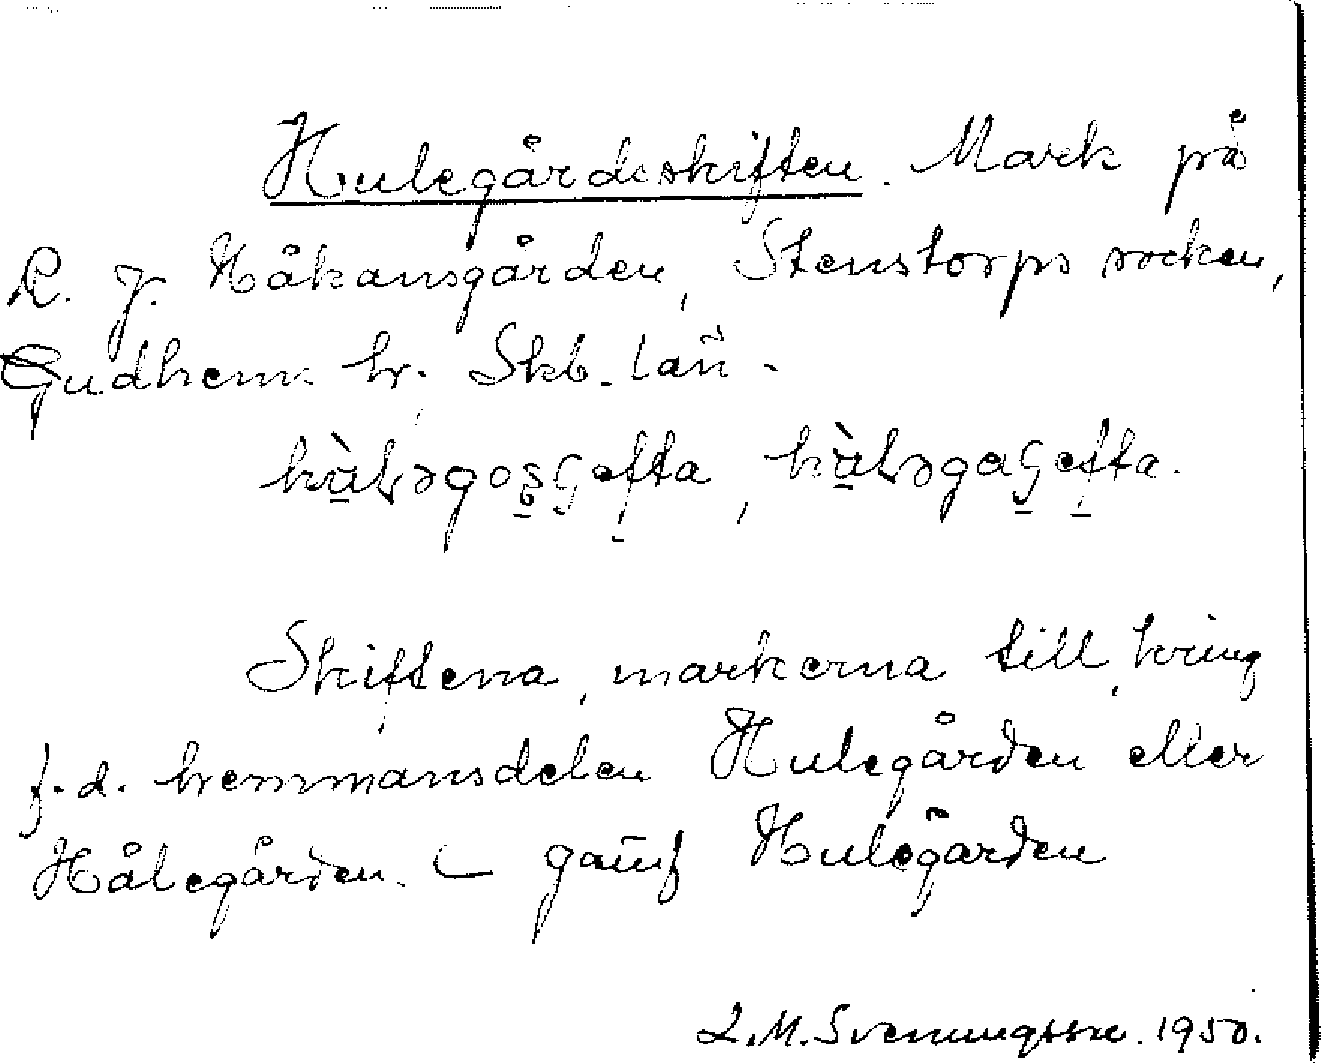 Hulegårdsskiften. Mark på
R. J. Håkansgården, Stenstorps socken,
Gudhems hr. Skb. län.
Skiftena, markerna till, kring
f.d. hemmansdelen Hulegården eller
Hålegården. – Jämf Hulegården
L.M. Svenungsson. 1950.